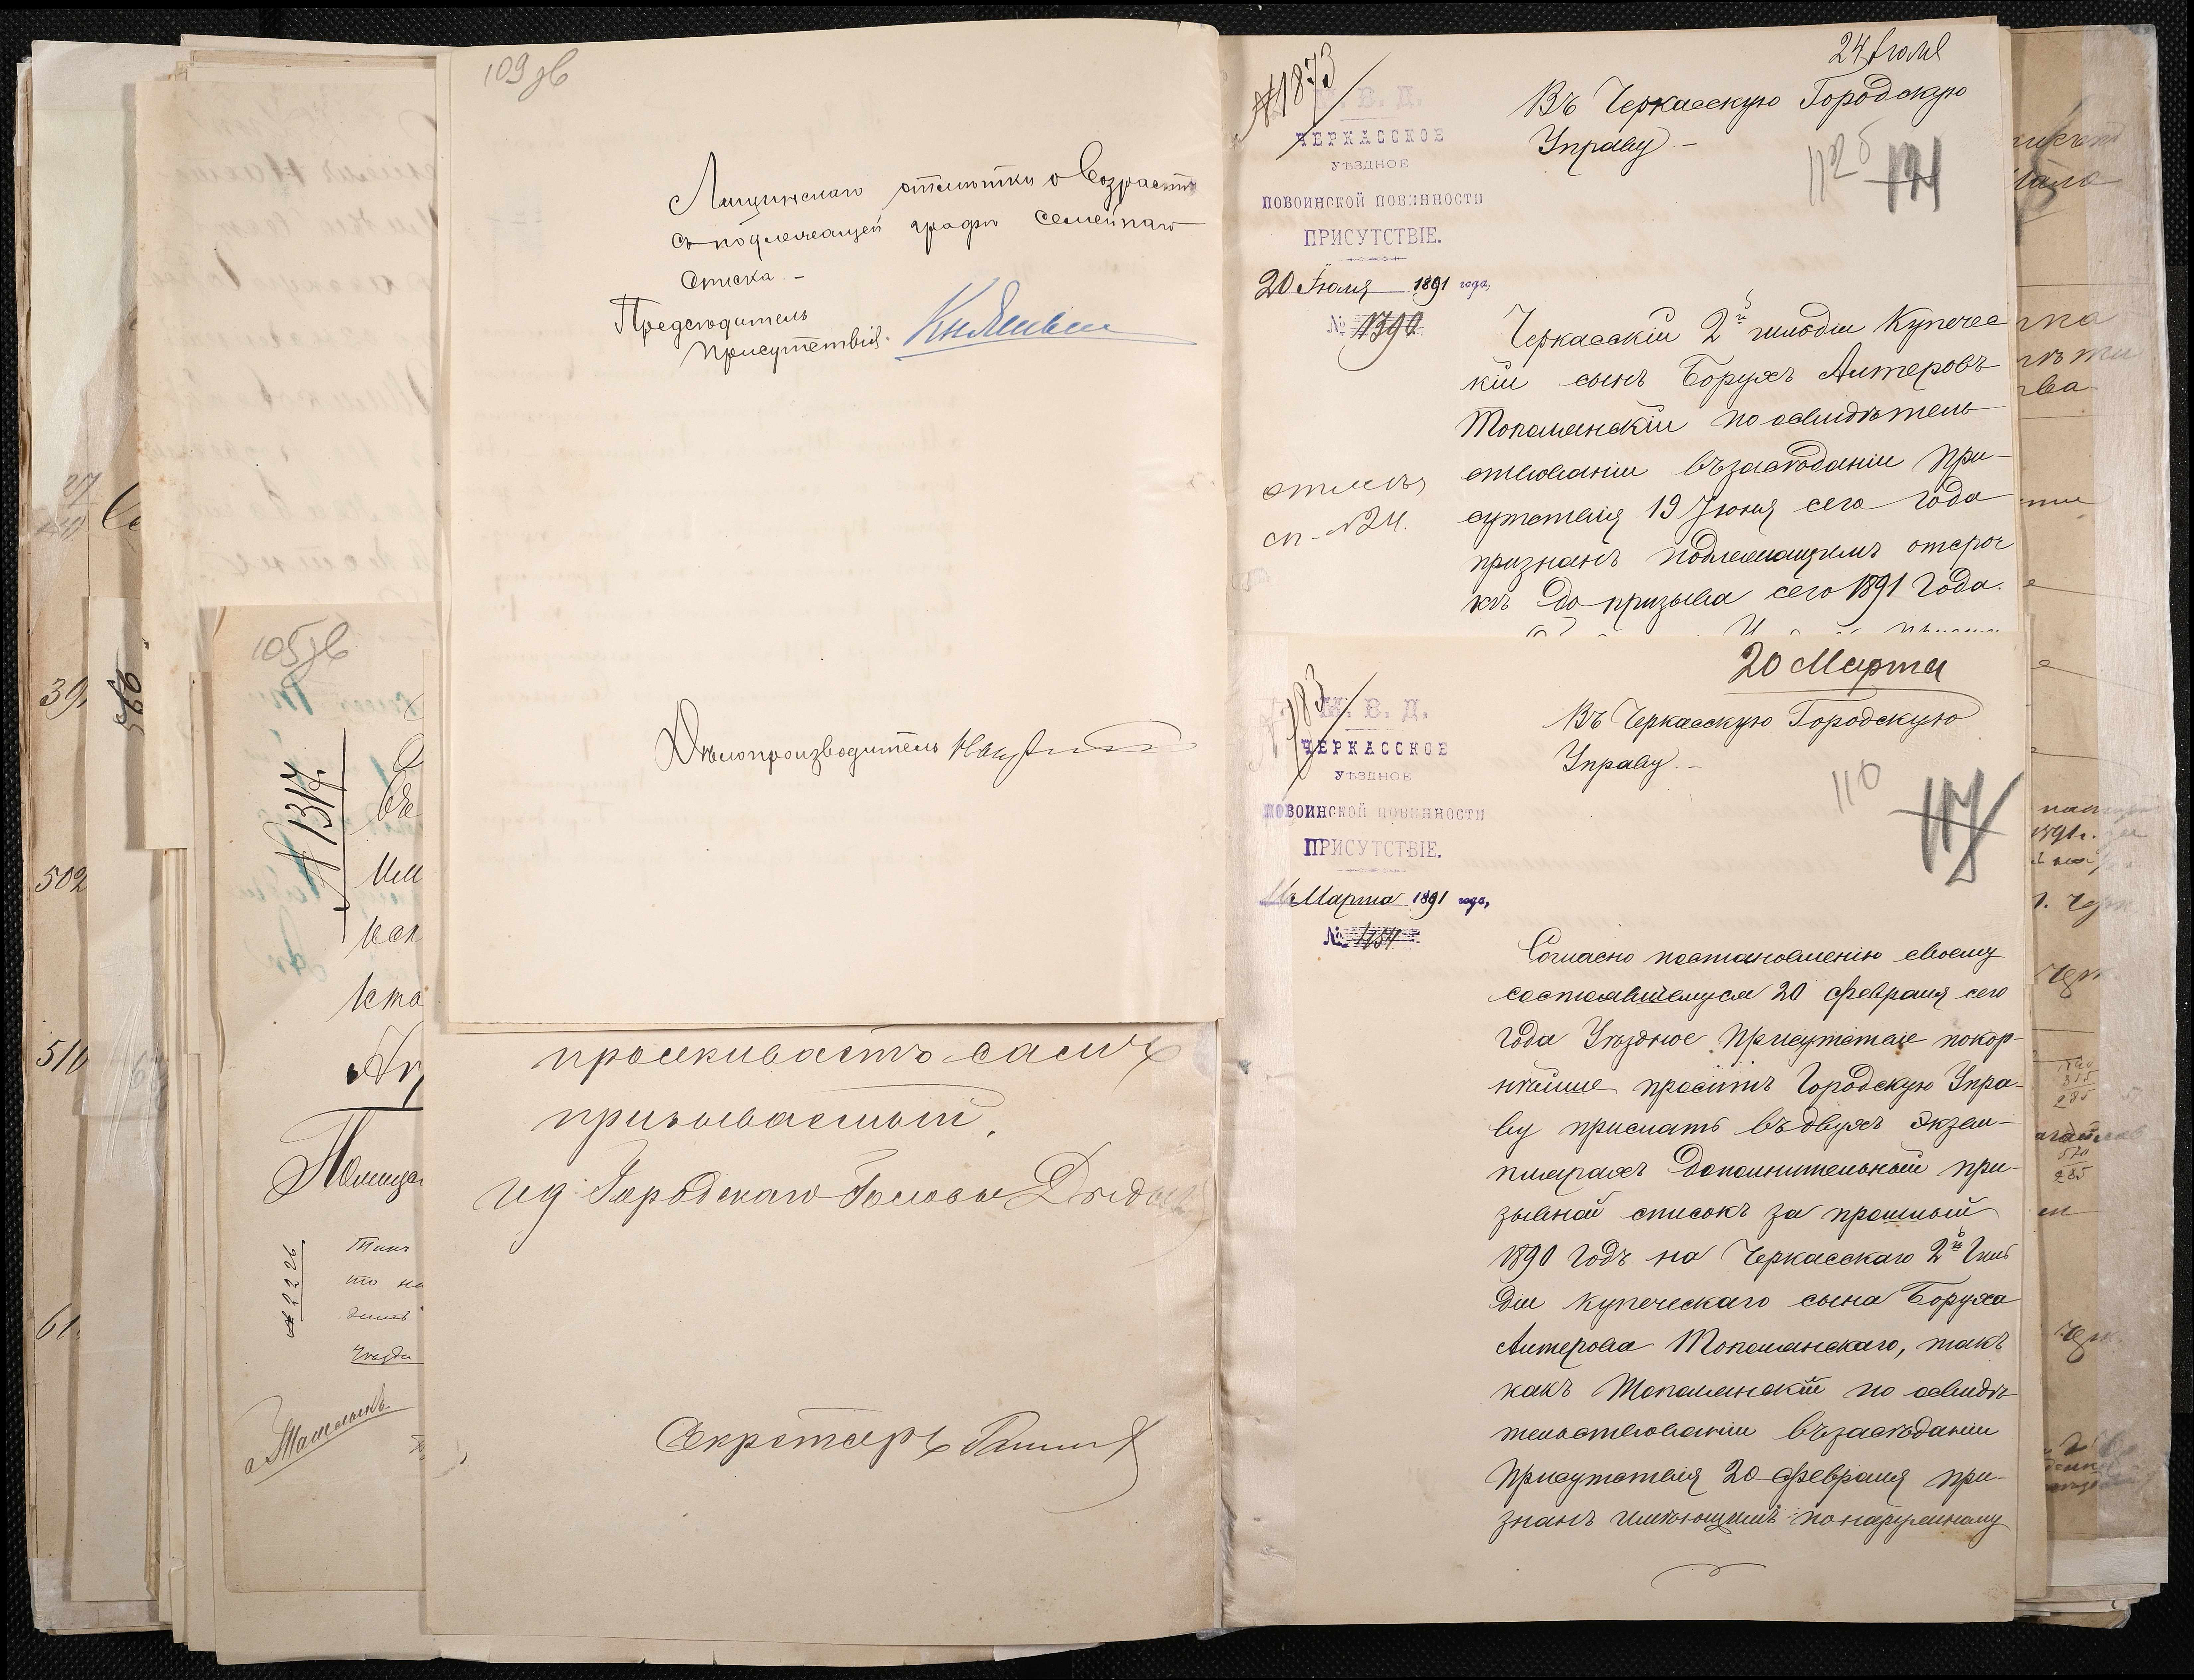 109 зв
Лищинскаго отмѣтки о возрастѣ
въ подлежащей графѣ семейнаго
списка. –
Предсѣдатель
Присутствія.
Дѣлопроизводитель
проживаетъ самъ
призываемый.
И д. Городскаго Головы
Секретарь
105 зв
№ 1317.
№ 2226
39
502
510
61
566
24 Іюля
№1873
М. В. Д.
ЧЕРКАССКОЕ
УѢЗДНОЕ
ПОВОИНСКОЙ ПОВИННОСТИ
ПРИСУТСТВІЕ.
20 Іюля 1891 года,
№ 1390
Въ Черкасскую Городскую
Управу. –
112б 121
Черкасскій 2й гильдіи Купечес
кій сынъ Борухъ Алтеровъ
Тополянскій по освидѣтель
ствованіи въ засѣданіи При-
сутствія 19 Іюня сего года
признанъ подлежащимъ отсроч
кѣ до призыва сего 1891 года.
отмеч.
сп. №24.
20 Марта
№783
М. В. Д.
ЧЕРКАССКОЕ
УѢЗДНОЕ
ПОВОИНСКОЙ ПОВИННОСТИ
ПРИСУТСТВІЕ.
16 Марта 1891 года,
№ 454
Въ Черкасскую Городскую
Управу. –
110 117
Согласно постановленію своему
состоявшемуся 20 февраля сего
года Уѣздное Присутствіе покор-
нѣйше проситъ Городскую Упра-
ву прислать въ двухъ экзем-
плярахъ дополнительный при-
зывной списокъ за прошлый
1890 годъ на Черкасскаго 2й Гиль
діи купеческаго сына Боруха
Алтерова Тополянскаго, такъ
какъ Тополянскій по освидѣ
тельствованіи въ засѣданіи
Присутствія 20 февраля при-
знанъ имѣющимъ по наружному